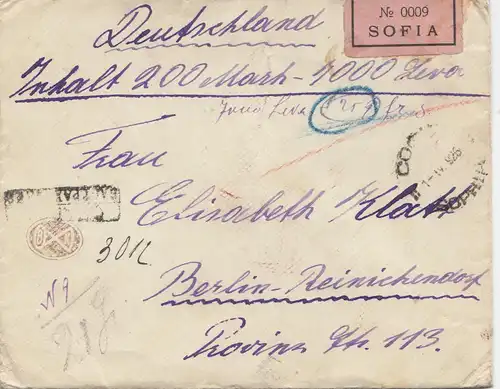 № 0009
SOFIA
Deutschland
Inhalt 200 Mark - 4000 Leva
Leva 259 frs
Frau
Elisabeth Klatt
301г.
Berlin-Reinickendorf
Provinz Str. 113.
№ 9